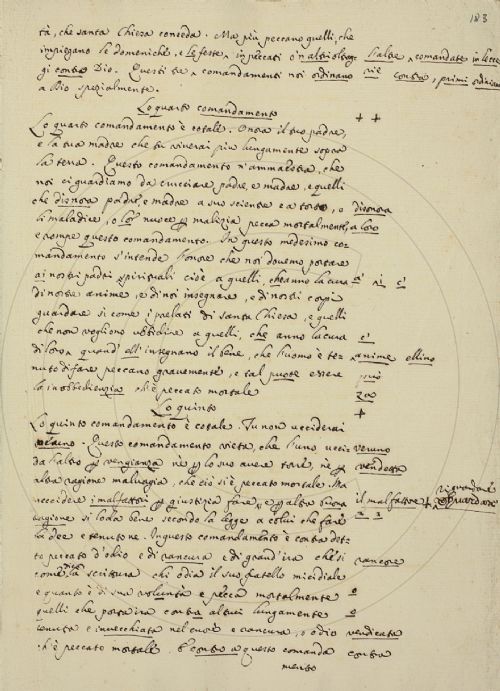 183
tà, che santa Chiesa conceda. Ma più peccano quelli, che
impiegano le domeniche, e le feste ^ in peccati o'n altri oltrag- l'altre ^ comandate in lecce-
gi contro Dio. Questi tre ^ comandamenti noi ordinano contra, primi ordinano
a Dio spezialmente.
Lo quarto comandamento ++
Lo quarto comandamento è cotale. Onora il tuo padre,
e la tua madre che tu viverai più lungamente sopra
la terra. Questo comandamento n'ammaestra, che
noi ci guardiamo da crucciare padre, e madre, e quelli
che disnora padre, e madre a suo sciente e a torto, o disonora
li maladice, o lor nuoce p malizia pecca mortalmente, a loro
e rompe questo comandamento. In questo medesimo co-
mandamento s'intende l'onore che noi dovemo portare
ai nostri padri spirituali cioè a quelli, cheanno la cura a' ni c'
di nostre anime, e di noi insegnare, e di nostri corpi
guardare si come i prelati di santa Chiesa, e quelli
che non vogliono ubbidire a quelli, che anno la cura c'
di loro ^ quand' ell' insegnano il bene, che l'uomo è te- ^ anime ellino
nuto di fare peccano gravemente, e tal puote essere può
la inobbedienzia ch'è peccato mortale za
Lo quinto +
Lo quinto comandamento è cotale. Tu non ucciderai
neuno. Questo comandamento vieta, che l'uno ucci- veruno
da l'altro p vengianza nè p lo suo avere torre, nè p vendetta
altra ragione malvagia, che ciò si è peccato mortale. Ma
uccidere i malfattori p giustizia fare, e p altra buona il malfattore
ragione si loda bene secondo la legge a colui che fare
la dee e tenuto ne. In questo comandamento è contradet-
to peccato d'odio e di rancura e di grand'ira che si rancore
come dice la scrittura chi odia il suo fratello micidiale
e quanto è di sua voluntà e pecca mortalmente o
quelli che porta ira contra altrui lungamente o
tenuta e invecchiata nel cuore è rancura, o odio vendicata
ch'è peccato mortale. E' contro a questo comanda contra
mento